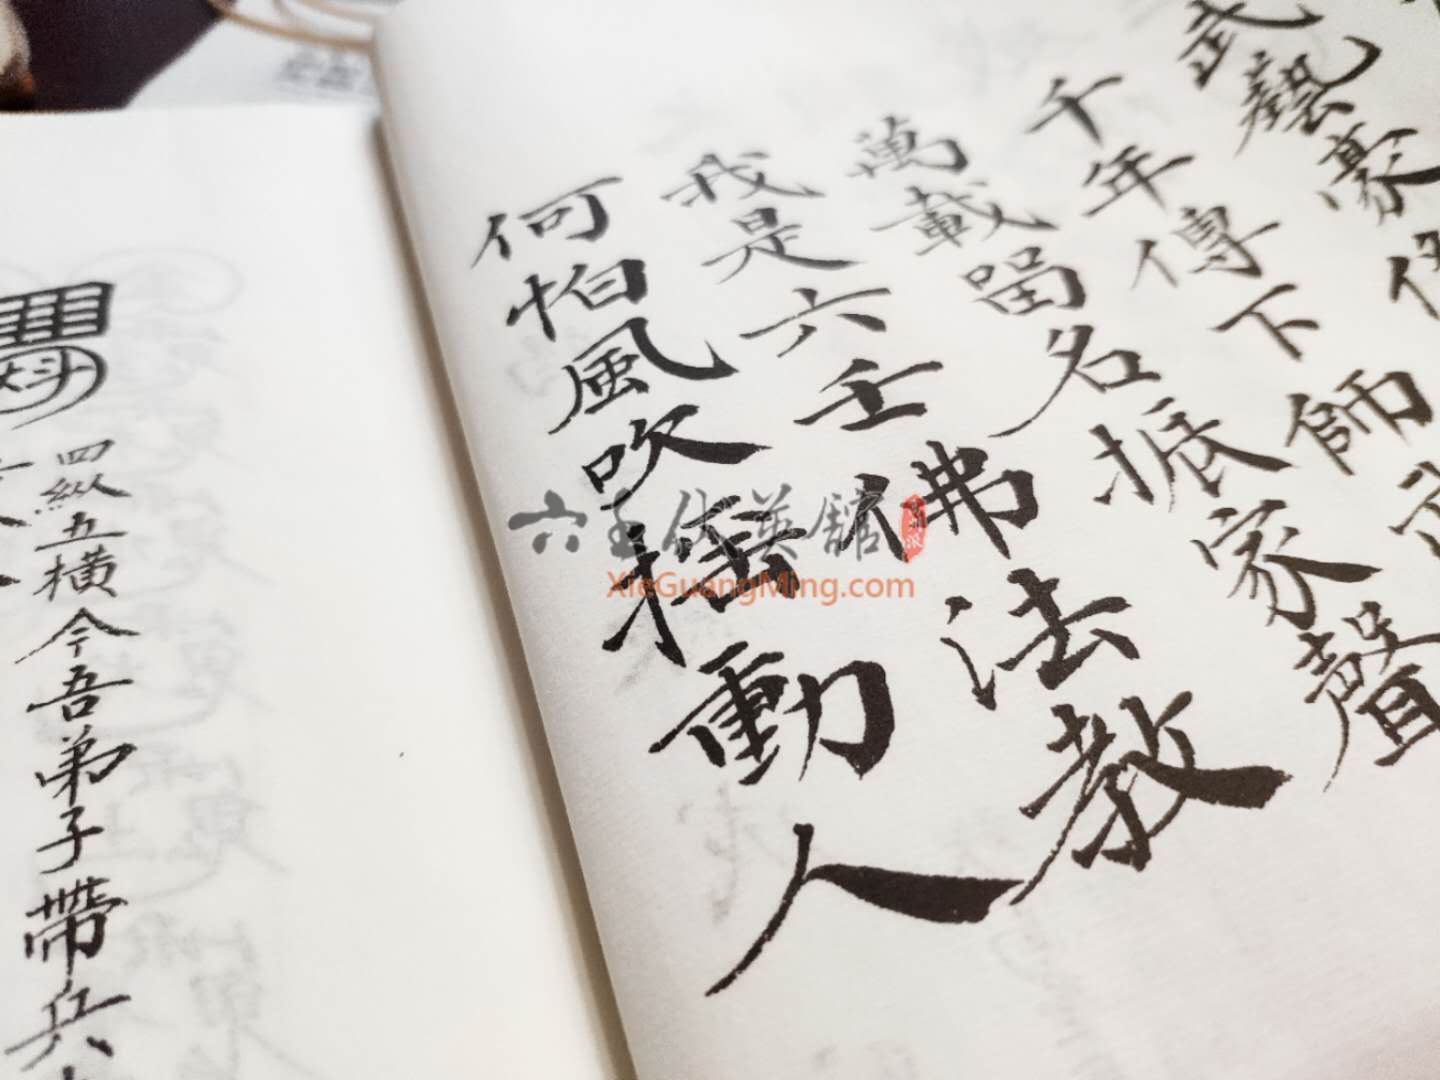 武藝豪
千年傳下師
萬載留名振家聲
我是六壬佛法教
何怕風吹搖動人
四纵五横今吾弟子帶兵
六壬伏英館
XieGuangMing.com